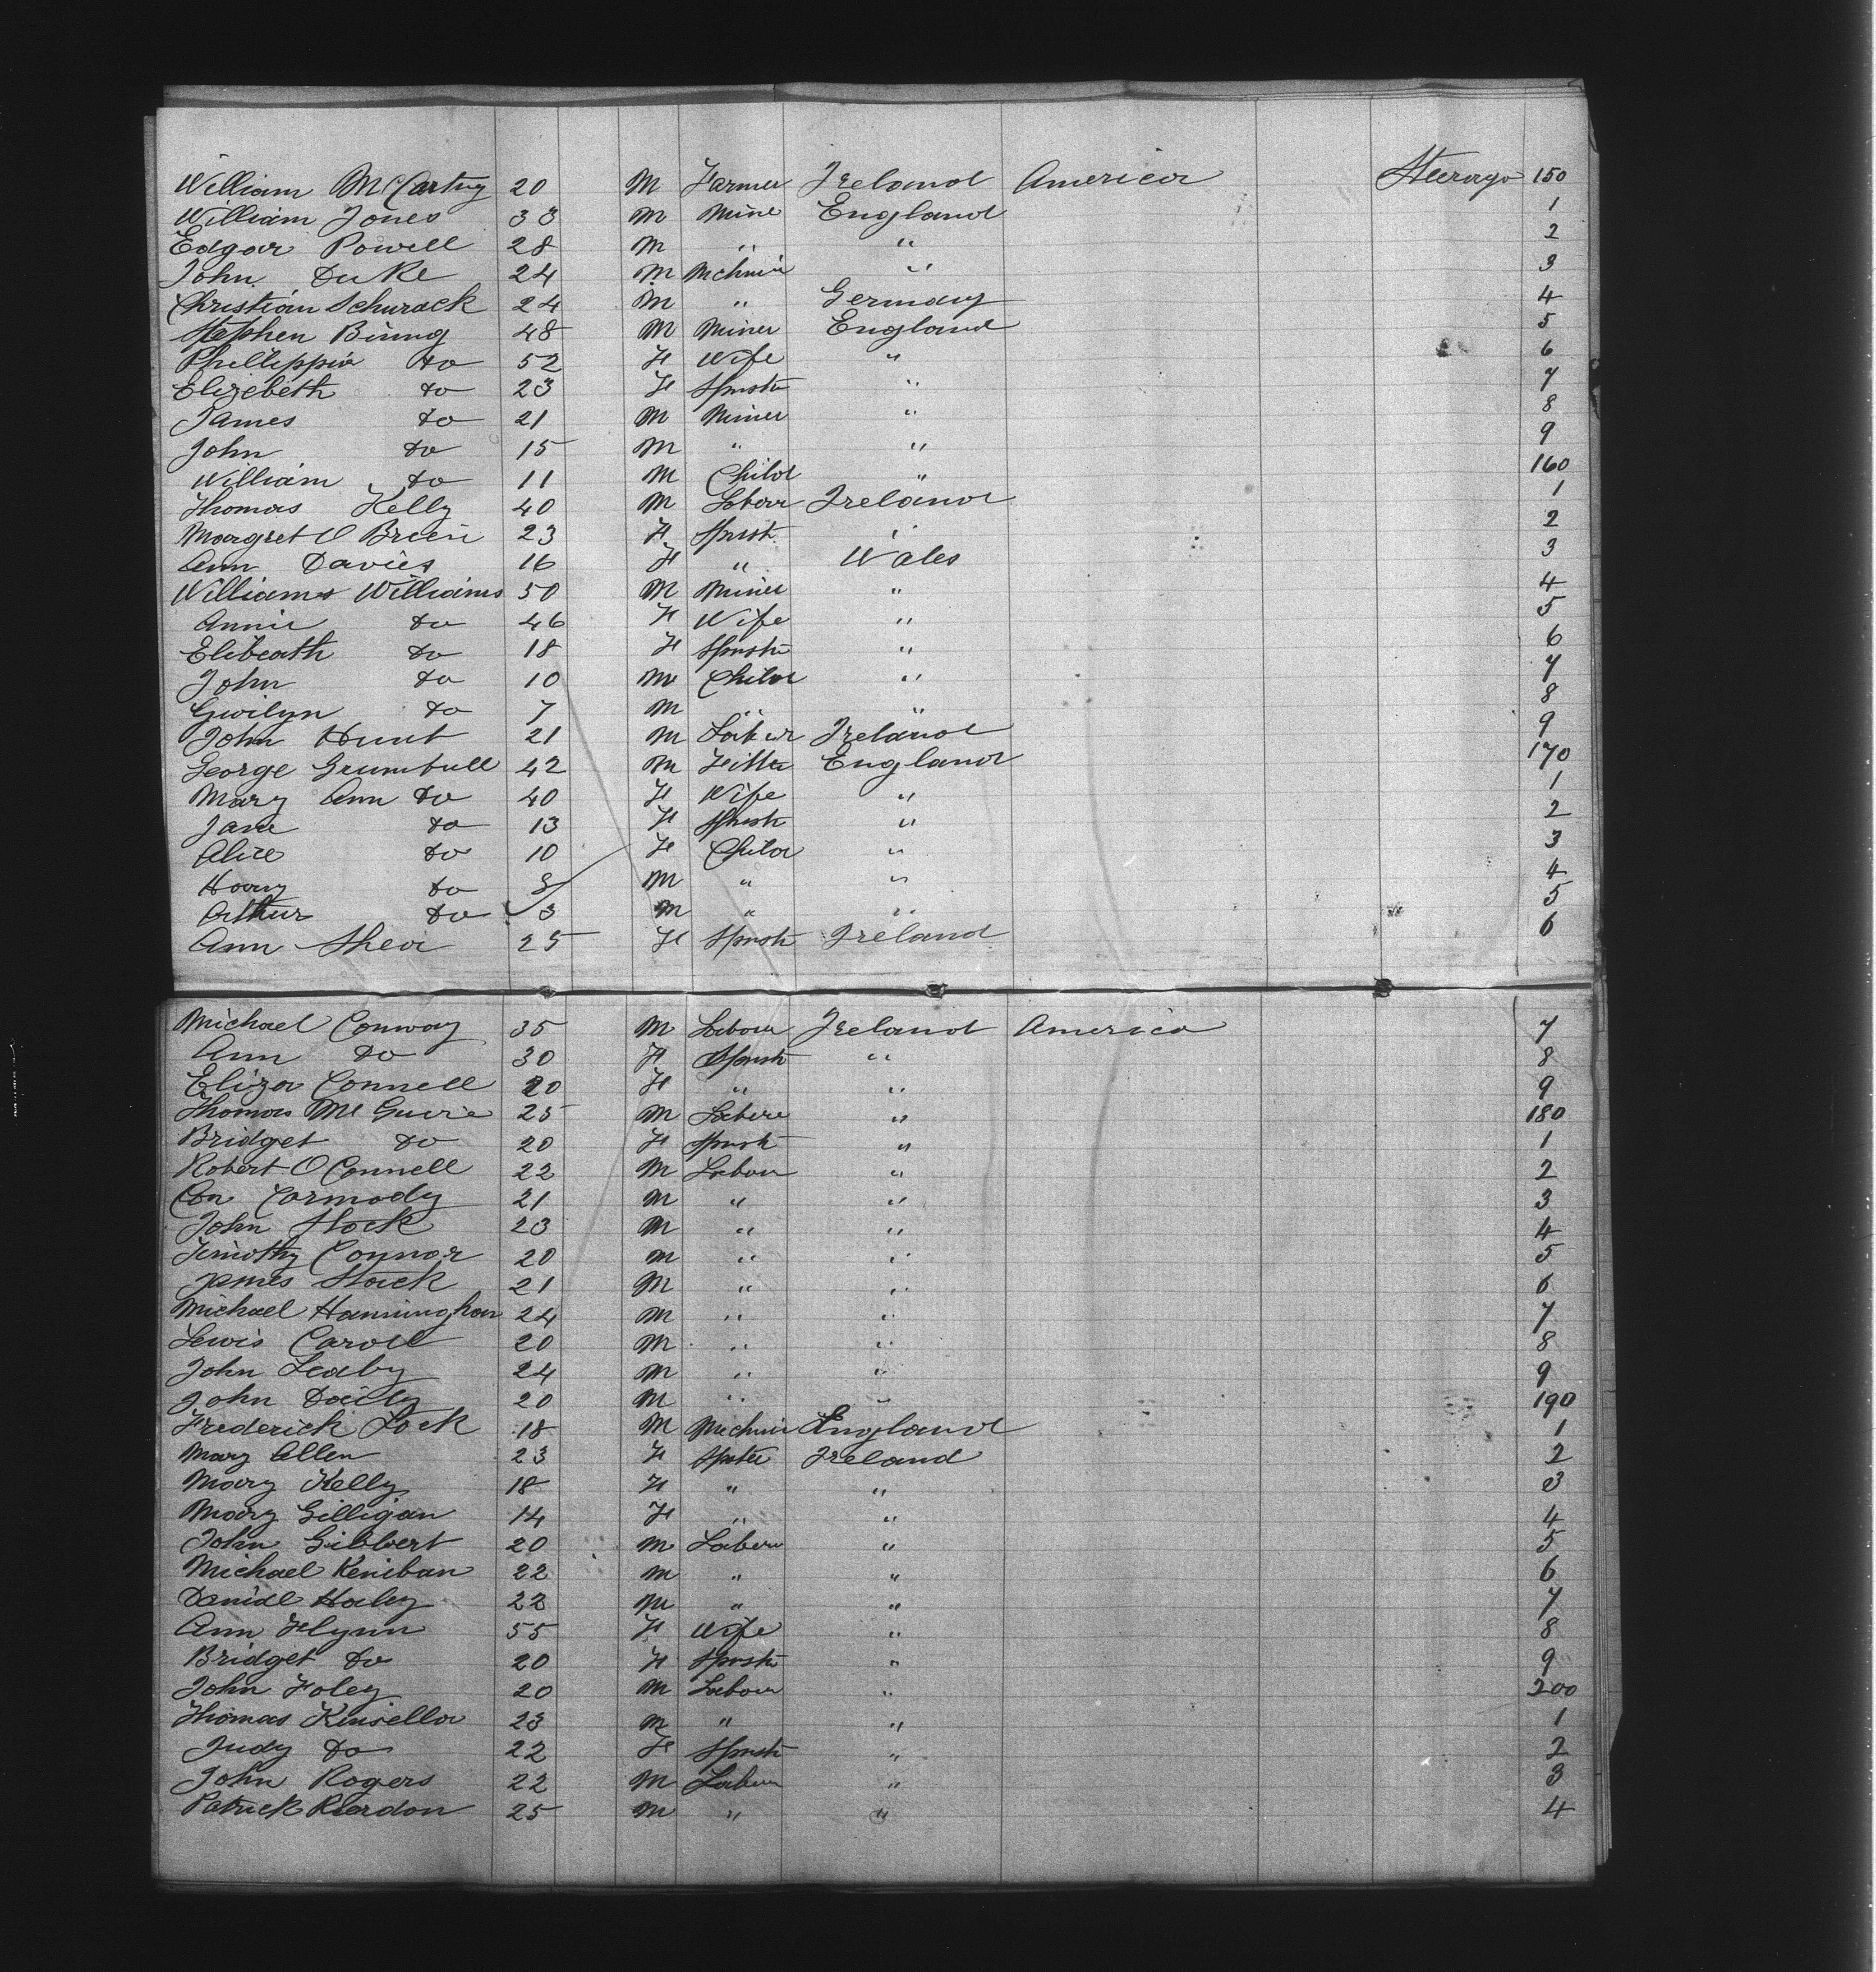 William McCartny 20 M Farmer Ireland America Steerage 150
William Jones 33 M Mine England 1
Edgar Powell 28 M " " 2
John Duke 24 M Mchnic " 3
Christian Schurack 24 M " Germany 4
Stephen Binng 48 M Miner England 5
Phillippia do 52 F Wife " 6
Elizebeth do 23 F Spnstr " 7
James do 21 M Miner " 8
John do 15 M " " 9
William do 11 M Child " 160
Thomas Kelly 40 M Laborr Ireland 1
Margret O Brien 23 F Spnst " 2
Ann Davies 16 F " Wales 3
Williams Williams 50 M Miner " 4
Annie do 46 F Wife " 5
Elibeath do 18 F Spnstr " 6
John do 10 M Child " 7
Gwilyn do 7 M " " 8
John Hunt 21 M Labur Ireland 9
George Grumbull 42 M Fitter England 170
Mary Ann do 40 F Wife " 1
Jane do 13 F Spnstr " 2
Alice do 10 F Child " 3
Harry do 8 M " " 4
Arthur do 3 M " " 5
Ann Shea 25 F Spnstr Ireland 6
Michael Conway 35 M Labour Ireland America 7
Ann do 30 F Spnstr " 8
Eliza Connell 20 F " " 9
Thomas Mc Guire 25 M Laberr " 180
Bridget do 20 F Spnstr " 1
Robert O Connell 22 M Labour " 2
Con Cormody 21 M " " 3
John Stock 23 M " " 4
Timothy Connor 20 M " " 5
James Stack 21 M " " 6
Michael Hanninghan 24 M " " 7
Lewis Caroll 20 M " " 8
John Leahy 24 M " " 9
John Daily 20 M " " 190
Frederick Lock 18 M Mechnic England 1
Mary Allen 23 F Spster Ireland 2
Mary Kelly 18 F " " 3
Mary Gilligan 14 F " " 4
John Gibbert 20 M Laberr " 5
Michael Keniban 22 M " " 6
Daniel Haley 22 M " " 7
Ann Flynn 55 F Wife " 8
Bridget do 20 F Spnstr " 9
John Foley 20 M Labour " 200
Thomas Kinsella 23 M " " 1
Judy do 22 F Spnstr " 2
John Rogers 22 M Labur " 3
Patrick Reardon 25 M " " 4